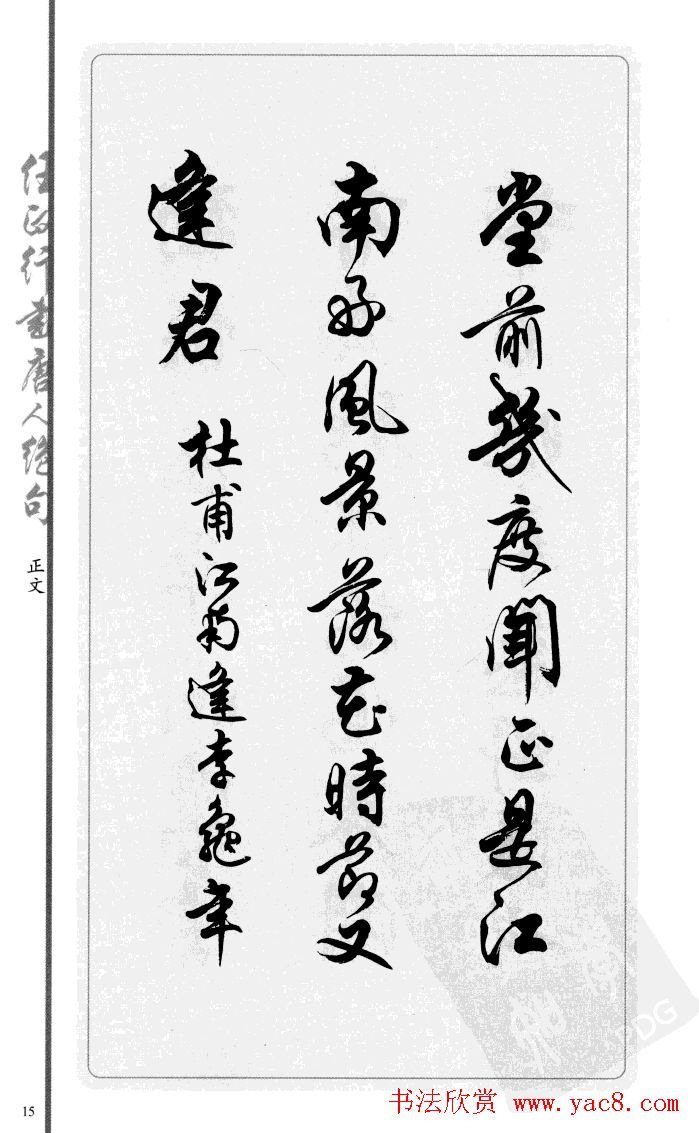 堂前幾度聞正是江
南好風景落花時節又
逢君
杜甫江南逢李龜年
任政行書唐人絕句
正文
15
书法欣赏 www.yac8.com
PDG